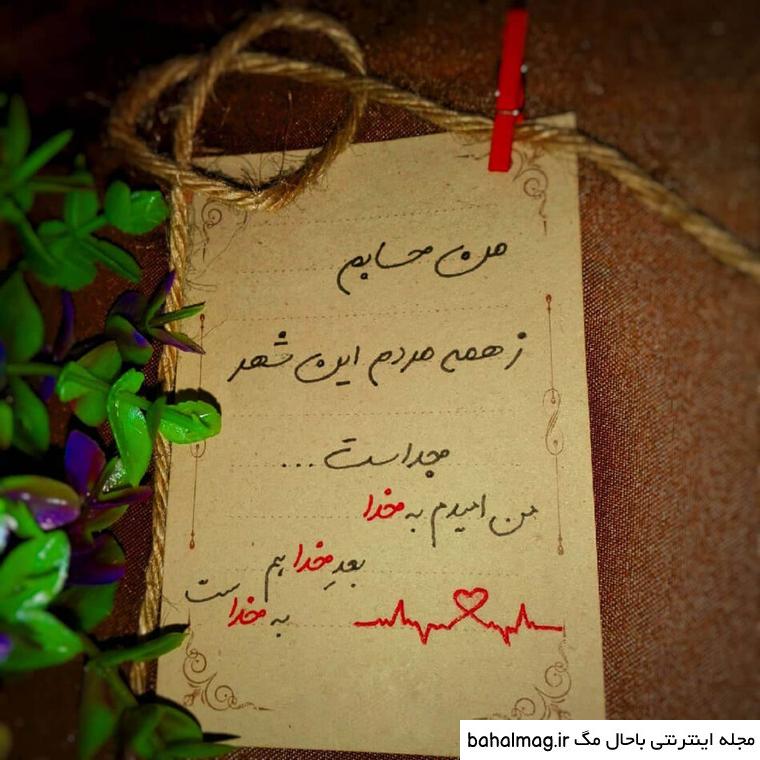 من حسابم
ز همه مردم این شهر
جداست...
من امیدم به خدا
بعدِ خدا هم
به خداست
مجله اینترنتی باحال مگ bahalmag.ir